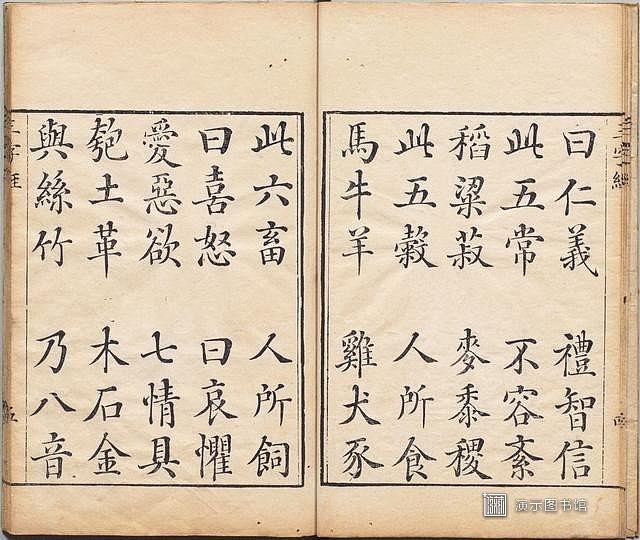 曰仁義 禮智信
此五常 不容紊
稻粱菽 麥黍稷
此五穀 人所食
馬牛羊 雞犬豕
此六畜 人所飼
曰喜怒 曰哀懼
愛惡欲 七情具
匏土革 木石金
與絲竹 乃八音
三字經
三字經
五
演示图书馆